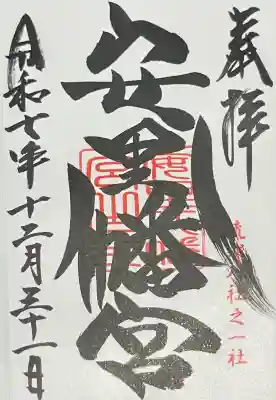 奉拝
琉球八社之一社
安里八幡宮
令和七年十二月三十一日